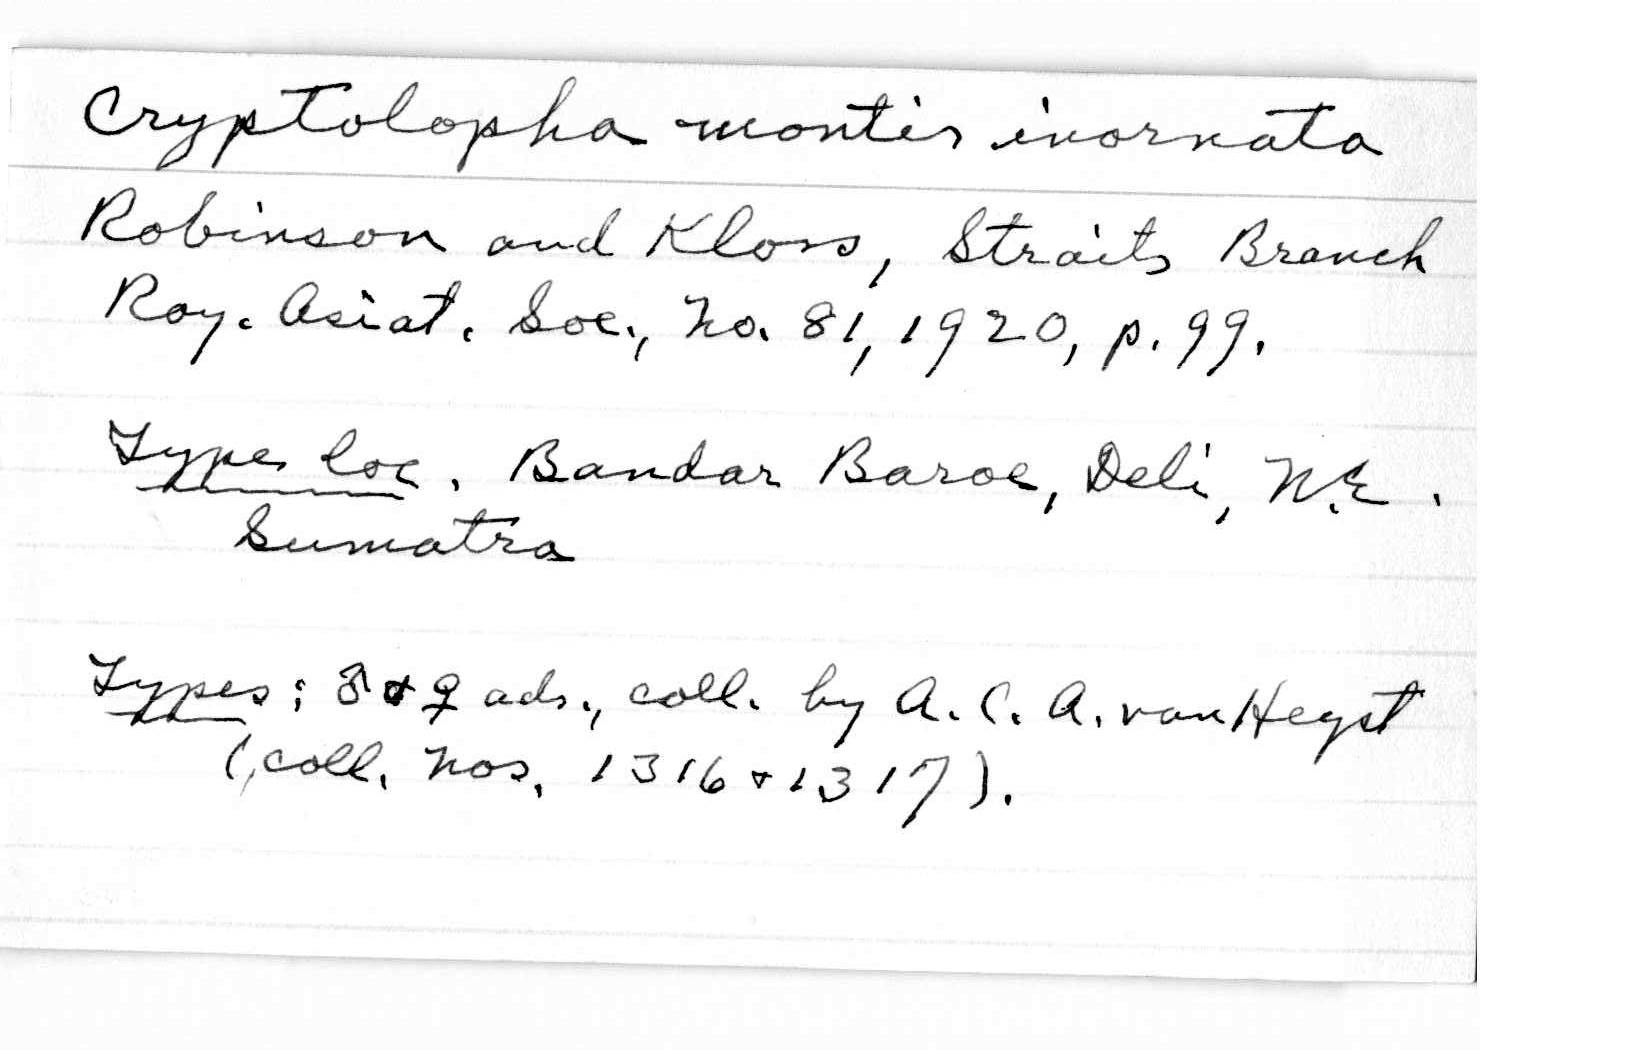 Cryptolopha montis inornata
Robinson and Kloss, Straits Branch
Roy. Asiat. Soc., No. 81, 1920, p. 99.
Type loc. Bandar Baroe, Deli, N.E.
Sumatra
Types; ♂ & ♀ ads., coll. by A. C. A. van Heyst
(coll. nos. 1316 & 1317).